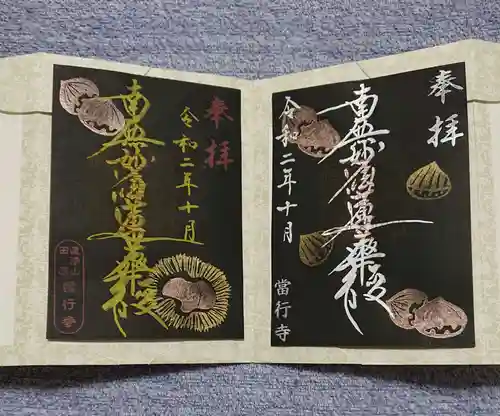 奉拝
令和二年十月
南無妙法蓮華経
當行寺
奉拝
南無妙法蓮華経
令和二年十月
當行寺